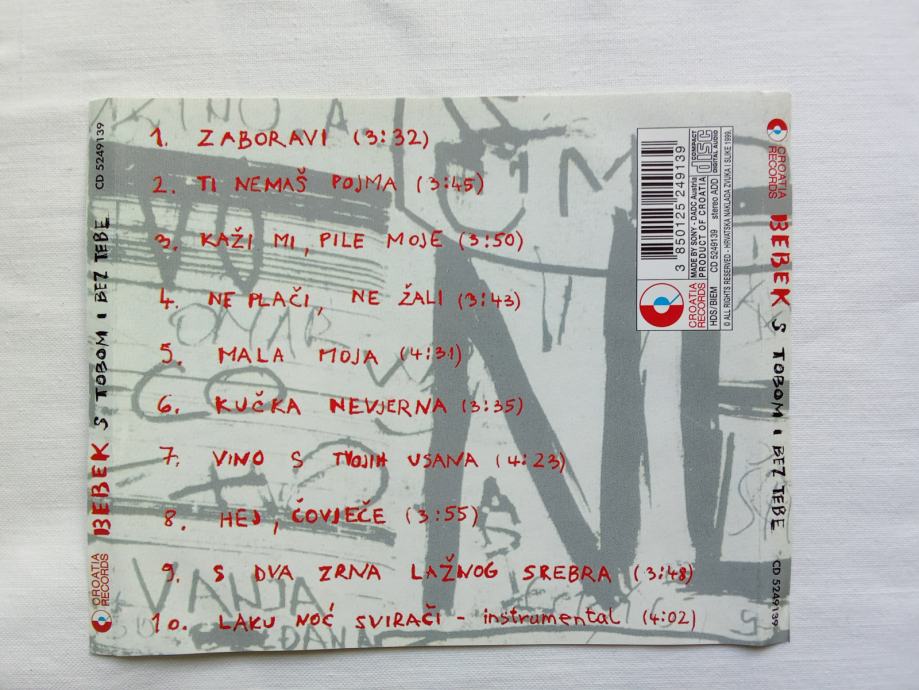 1. ZABORAVI (3:32)
2. TI NEMAŠ POJMA (3:45)
3. KAŽI MI, PILE MOJE (3:50)
4. NE PLAČI, NE ŽALI (3:43)
5. MALA MOJA (4:31)
6. KUČKA NEVJERNA (3:35)
7. VINO S TVOJIH USANA (4:23)
8. HEJ, ČOVJEČE (3:55)
9. S DVA ZRNA LAŽNOG SREBRA (3:48)
10. LAKU NOĆ SVIRAČI - instrumental (4:02)
CROATIA RECORDS BEBEK S TOBOM I BEZ TEBE CD 5249139
CROATIA RECORDS BEBEK S TOBOM I BEZ TEBE CD 5249139
3 850125 249139
CROATIA RECORDS
MADE BY SONY - DADC Austria
PRODUCT OF CROATIA
COMPACT disc DIGITAL AUDIO
HDS/BIEM CD 5249139 stereo ADD
© ALL RIGHTS RESERVED - HRVATSKA NAKLADA ZVUKA I SLIKE 1999.
VANJA